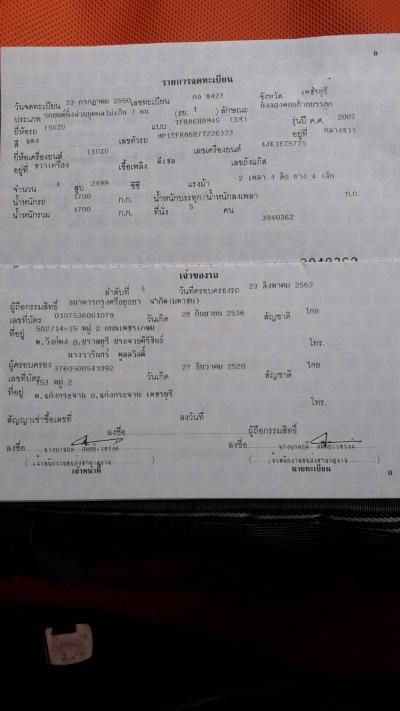 8
รายการจดทะเบียน
วันจดทะเบียน 23 กรกฎาคม 2550 เลขทะเบียน กธ 8423 จังหวัด เพชรบุรี
ประเภท รถยนต์นั่งส่วนบุคคลไม่เกิน 7 คน (รย. 1 ) ลักษณะ
ยี่ห้อรถ ISUZU แบบ (SM) รุ่นปี ค.ศ. 2007
สี แดง เลขตัวรถ MP1TFR86H77226323 อยู่ที่ กลางขวา
ยี่ห้อเครื่องยนต์ ISUZU เลขเครื่องยนต์ 4JK1EZ5775
อยู่ที่ ขวาเครื่อง เชื้อเพลิง ดีเซล เลขถังแก๊ส
จำนวน 4 สูบ 2499 ซีซี แรงม้า 2 เพลา 4 ล้อ ยาง 4 เส้น
น้ำหนักรถ 1700 ก.ก. น้ำหนักบรรทุก/น้ำหนักลงเพลา ก.ก.
น้ำหนักรวม 1700 ก.ก. ที่นั่ง 5 คน
3940362
3940362
เจ้าของรถ
ลำดับที่ 3 วันที่ครอบครองรถ 23 สิงหาคม 2562
ผู้ถือกรรมสิทธิ์ ธนาคารกรุงศรีอยุธยา จำกัด(มหาชน)
เลขที่บัตร 0107536001079 วันเกิด 28 กันยายน 2536 สัญชาติ ไทย
ที่อยู่ 502/14-15 หมู่ 2 ถนนเพชรเกษม
ต.วังก์พง อ.ปราณบุรี ประจวบคีรีขันธ์ โทร.
ผู้ครอบครอง นางวารินทร์
เลขที่บัตร 3760500541092 วันเกิด 27 ธันวาคม 2520 สัญชาติ ไทย
ที่อยู่ 153 หมู่ 2
ต.แก่งกระจาน อ.แก่งกระจาน เพชรบุรี โทร.
สัญญาเช่าซื้อเลขที่ ลงวันที่
ลงชื่อ ผู้ถือกรรมสิทธิ์
ลงชื่อ ลงชื่อ
เจ้าหน้าที่ นายทะเบียน